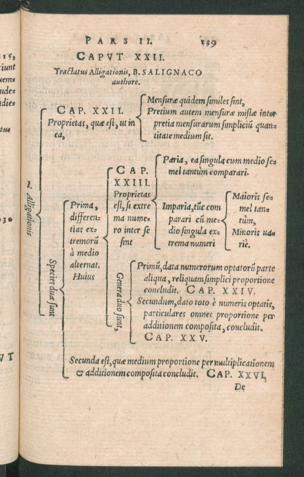 PARS II. 159
CAPVT XXII.
Tractatus Alligationis, B. SALIGNACO
authore.
CAP. XXII.
Proprietas, quæ est, ut in
ea,
Mensuræ quidem similes sint,
Pretium autem mensuræ mistæ inter
pretia mensurarum simplicium quan-
titate medium sit.
2. Alligationis
Species duæ sunt
Prima,
differen-
tias ex-
tremorũ
à medio
alternat.
Huius
CAP.
XXIII.
Proprietas
est, si extre
ma nume-
ro inter se
sint
Paria, ea singula cum medio se-
mel tantum comparari.
Imparia, tũc com
parari cũ me-
dio singula ex
trema numeri
Maioris se-
mel tan-
tùm,
Minoris va-
riè.
Genera duo sunt,
Primũ, data numerorum optatorũ parte
aliqua, reliquam simplici proportione
concludit. CAP. XXIV.
Secundum, dato toto è numeris optatis,
particulares omnes proportione per
additionem composita, concludit.
CAP. XXV.
Secunda est, quæ medium proportione per multiplicationem
& additionem composita concludit. CAP. XXVI,
De